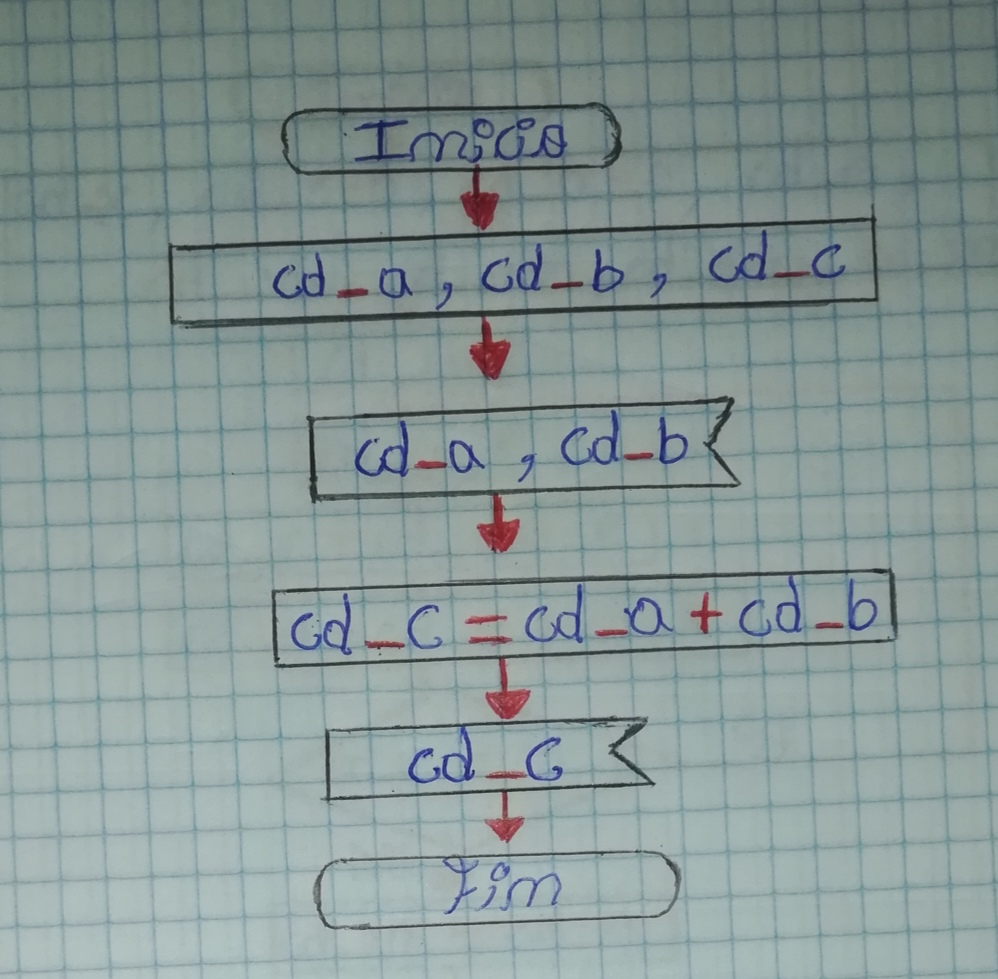 Inicio
cd_a, cd_b, cd_c
cd_a, cd_b
cd_c = cd_a + cd_b
cd_c
Fim